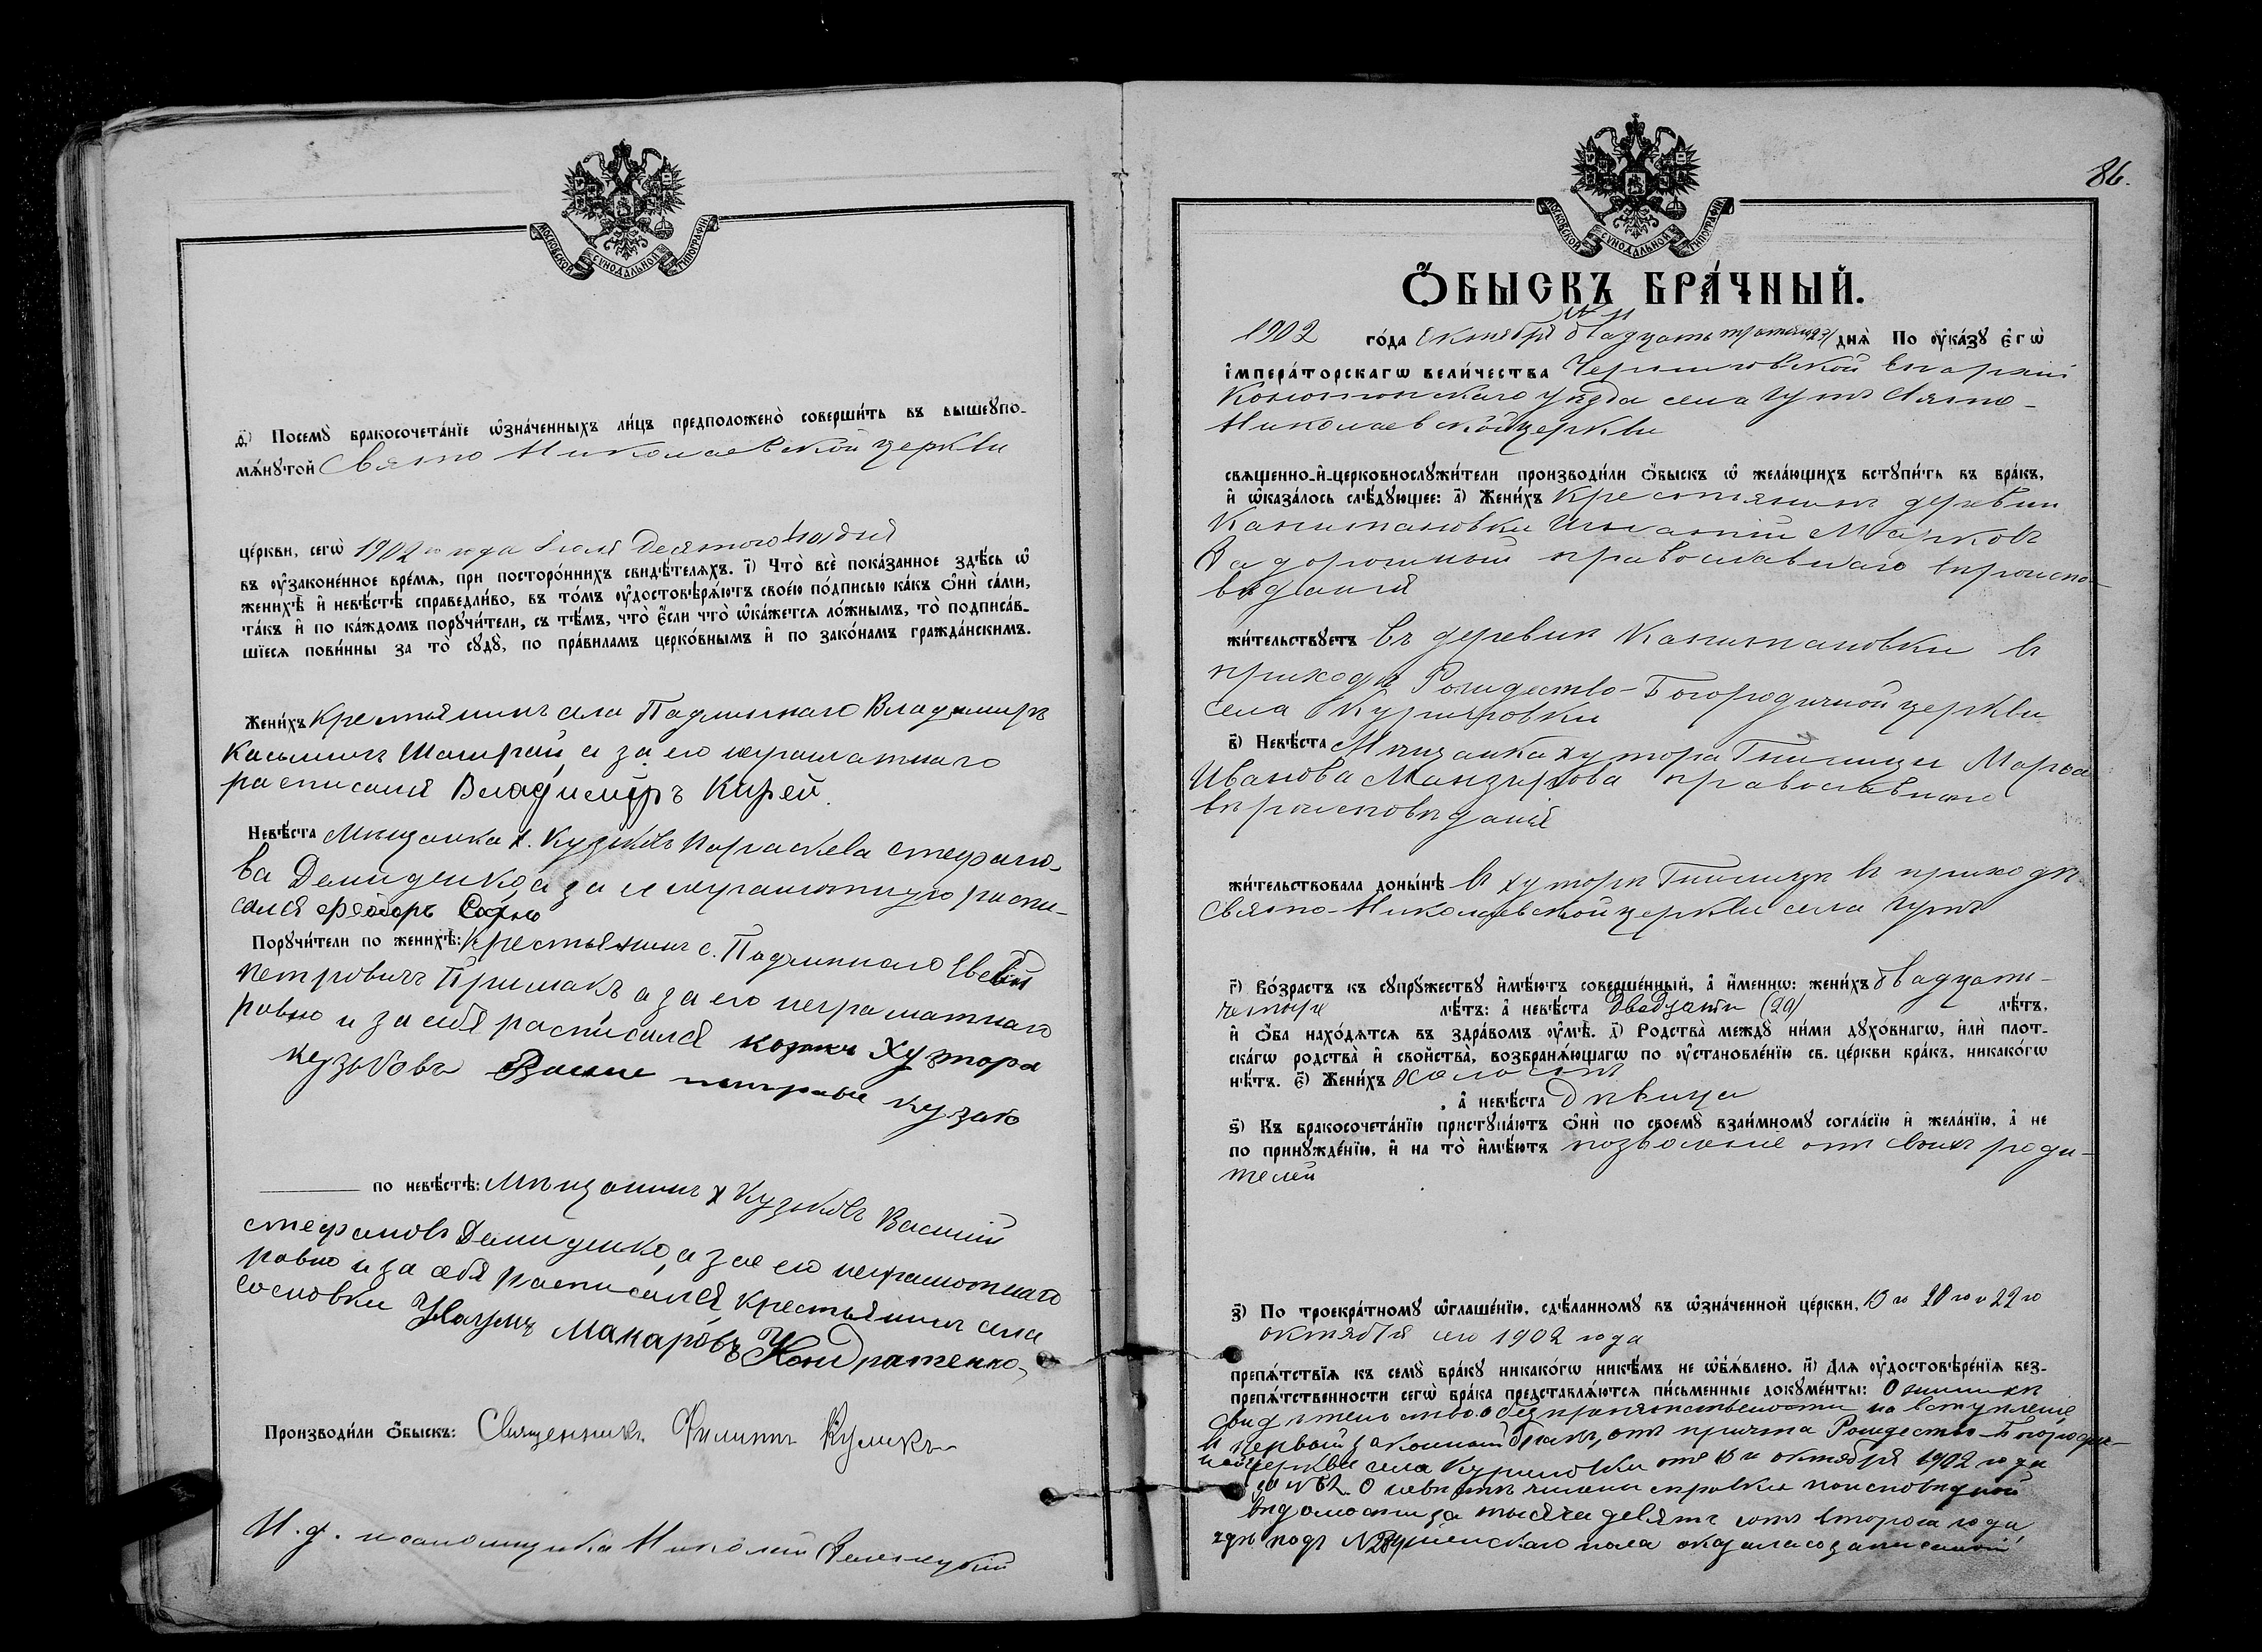 МОСКОВСКОЙ СѴНОДАЛЬНОЙ ТИПОГРАФІИ
ѳ҃) Посемꙋ̀ бракосочета́нїе ѡ҆зна́ченныхъ ли́цъ предположено̀ соверши́ть въ вышеꙋпо-
мѧ́нꙋтой Свято Николаевской церкви
це́ркви, сегѡ̀ 1902 го года Іюля десятого дня
въ ᲂу҆зако́ненное вре́мѧ, при посторо́ннихъ свидѣ́телѧхъ. і҃) Что̀ всѐ пока́занное здѣ́сь ѡ҆
женихѣ̀ и҆ невѣ́стѣ справедли́во, въ то́мъ ᲂу҆достовѣрѧ́ютъ свое́ю по́дписью ка́къ ѻ҆нѝ са́ми,
та́къ и҆ по ка́ждомъ порꙋчи́тели, съ тѣ́мъ, что̀ є҆́сли что̀ ѡ҆ка́жетсѧ ло́жнымъ, то̀ подписа́в-
шїесѧ пови́нны за то̀ сꙋдꙋ̀, по пра́виламъ церко́внымъ и҆ по зако́намъ гражда́нскимъ.
Жени́хъ Крестьянинъ села Подлипнаго Владимиръ
Касьяновъ Шамрай, а за его неграматнаго
росписался Владимиръ Кирей.
Невѣ́ста Мѣщанка х. Кузьковъ Параскева Стефано-
ва Демиденко, а за ея неграмотную роспи-
сался Феодоръ
Порꙋчи́тели по женихѣ̀: Крестьянинъ с. Подлипнаго
Петровичъ Примакъ а за его неграматнаго
ровно и за себя расписался козакъ Хутора
Кузьковъ Кузько
по невѣ́стѣ: Мѣщанинъ х Кузьковъ Василій
Стефановъ Демиденко, а за его неграмотнаго
ровно и за себя росписался, крестьянинъ села
Сосновки Наумъ Макаровъ Кондратенко
Производи́ли ѻ҆́быскъ: Священникъ Филиппъ Куликъ
И. д. псаломщика Николай
86.
МОСКОВСКОЙ СѴНОДАЛЬНОЙ ТИПОГРАФІИ
Ѻ҆́БЫСКЪ БРА́ЧНЫЙ.
1902 го́да Октября двадцать третьяго 23) днѧ̀ По ᲂу҆ка́зꙋ є҆гѡ̀
і҆мпера́торскагѡ вели́чества Черниговской Епархіи
Конотопскаго уѣзда села Гутъ Свято-
Николаевской церкви
свѧще́нно-и҆-церковнослꙋжи́тели производи́ли ѻ҆́быскъ ѡ҆ жела́ющихъ встꙋпи́ть въ бра́къ,
и҆ ѡ҆каза́лось слѣ́дꙋющее: а҃) Жени́хъ Крестьянинъ деревни
Капитановки Игнатій Марковъ
Задорожный православнаго вѣроиспо-
вѣданія
жи́тельствꙋетъ въ деревнѣ Капитановки въ
приходѣ Рождество-Богородичной церкви
села Куриловки
в҃) Невѣ́ста Мѣщанка хутора Гнилицы Марѳа
Иванова Манзырева православнаго
вѣроисповѣданія
жи́тельствовала доны́нѣ въ хуторѣ Гнилицѣ въ приходѣ
Свято-Николаевской церкви села Гутъ
г҃) Во́зрастъ къ сꙋпрꙋ́жествꙋ и҆мѣ́ютъ соверше́нный, а҆ и҆́меннѡ: жени́хъ двадцать-
четыре лѣ́тъ: а҆ невѣ́ста двадцати (20) лѣ́тъ,
и҆ ѻ҆́ба нахо́дѧтсѧ въ здра́вомъ ᲂу҆мѣ̀. д҃) Родства̀ междꙋ̀ ни́ми дꙋхо́внагѡ, и҆лѝ плот-
ска́гѡ родства̀ и҆ сво́йства̀, возбранѧ́ющагѡ по ᲂу҆становле́нїю св. це́ркви бра́къ, никако́гѡ
нѣ́тъ. є҃) Жени́хъ Холостъ
, а҆ невѣ́ста Дѣвица
ѕ҃) Къ бракосочета́нїю пристꙋпа́ютъ ѻ҆нѝ по своемꙋ̀ взаи́мномꙋ согла́сїю и҆ жела́нїю, а҆ не
по принꙋжде́нїю, и҆ на то̀ и҆мѣ́ютъ позволеніе отъ своихъ роди-
телей
з҃) По троекра́тномꙋ ѡ҆глаше́нїю, сдѣ́ланномꙋ въ ѡ҆зна́ченной це́ркви, 13 го 20 го и 22 го
октября сего 1902 года
препѧ́тствїѧ къ семꙋ̀ бра́кꙋ никако́гѡ никѣ́мъ не ѡ҆б̾ѧ́влено. и҃) Для ᲂу҆достовѣре́нїѧ без-
препѧ́тственности сегѡ̀ бра́ка представлѧ́ютсѧ пи́сьменные докꙋме́нты: О женихѣ
свидѣтельство о безпрепятственности на вступленіе
въ первый законный бракъ, отъ причта Рождество-Богородич-
ной церкви села Куриловки отъ 13 го октября 1902 года
за № 62. О невѣстѣ чинены справки по исповѣдной
вѣдомости за тысяча девять сотъ второго года
гдѣ подъ № женскаго пола оказалась записанной